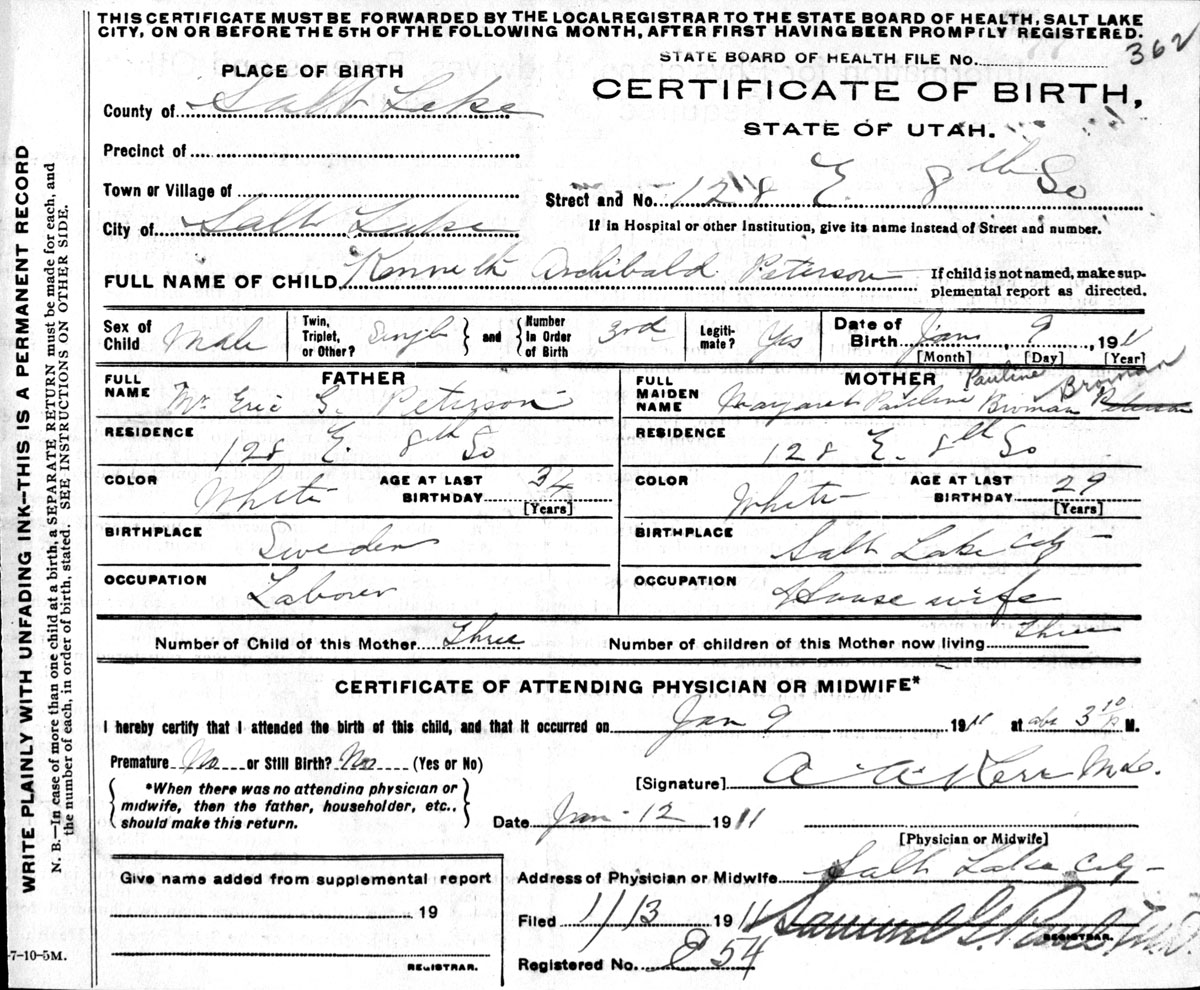 THIS CERTIFICATE MUST BE FORWARDED BY THE LOCAL REGISTRAR TO THE STATE BOARD OF HEALTH, SALT LAKE
CITY, ON OR BEFORE THE 5TH OF THE FOLLOWING MONTH, AFTER FIRST HAVING BEEN PROMPTLY REGISTERED.
362
STATE BOARD OF HEALTH FILE No.
PLACE OF BIRTH
CERTIFICATE OF BIRTH,
STATE OF UTAH.
County of Salt Lake
Precinct of
Town or Village of
Street and No. 128 E. 8th So
City of Salt Lake
If in Hospital or other Institution, give its name instead of Street and number.
FULL NAME OF CHILD Kenneth Archibald Peterson
If child is not named, make sup-
plemental report as directed.
Sex of Child Male
Twin, Triplet, or Other? Single and Number in Order of Birth 3rd
Legiti-mate? Yes
Date of Birth Jan 9, 1911
[Month] [Day] [Year]
FATHER
MOTHER Pauline Broman
FULL NAME Mr Eric G. Peterson
FULL MAIDEN NAME Margaret Pauline Broman Peterson
RESIDENCE 128 E. 8th So
RESIDENCE 128 E. 8th So
COLOR White AGE AT LAST BIRTHDAY 34 [Years]
COLOR White AGE AT LAST BIRTHDAY 29 [Years]
BIRTHPLACE Sweden
BIRTHPLACE Salt Lake City
OCCUPATION Laborer
OCCUPATION House wife
Number of Child of this Mother Three
Number of children of this Mother now living Three
CERTIFICATE OF ATTENDING PHYSICIAN OR MIDWIFE*
I hereby certify that I attended the birth of this child, and that it occurred on Jan 9 1911 at 3 10 M.
Premature No or Still Birth? No (Yes or No)
[Signature] A. A. Kerr M.D.
*When there was no attending physician or
midwife, then the father, householder, etc.,
should make this return.
Date Jan-12 1911
[Physician or Midwife]
Give name added from supplemental report
Address of Physician or Midwife Salt Lake City
19
Filed 1/13 1911 Samuel G. Paul M.D.
REGISTRAR.
REGISTRAR.
Registered No. 854
-7-10-5M.
WRITE PLAINLY WITH UNFADING INK—THIS IS A PERMANENT RECORD
N. B.—In case of more than one child at a birth, a SEPARATE RETURN must be made for each, and
the number of each, in order of birth, stated. SEE INSTRUCTIONS ON OTHER SIDE.